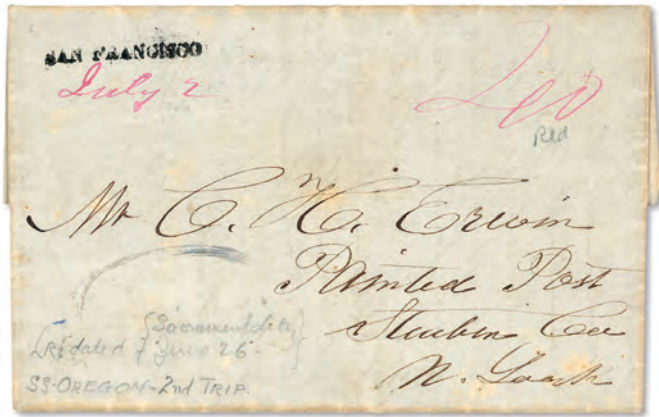 SAN FRANCISCO
July 2
40
Red
Mr C. H. Erwin
Painted Post
Steuben Co
N. York
{Sacramento City}
dated June 26
SS-OREGON-2nd TRIP.